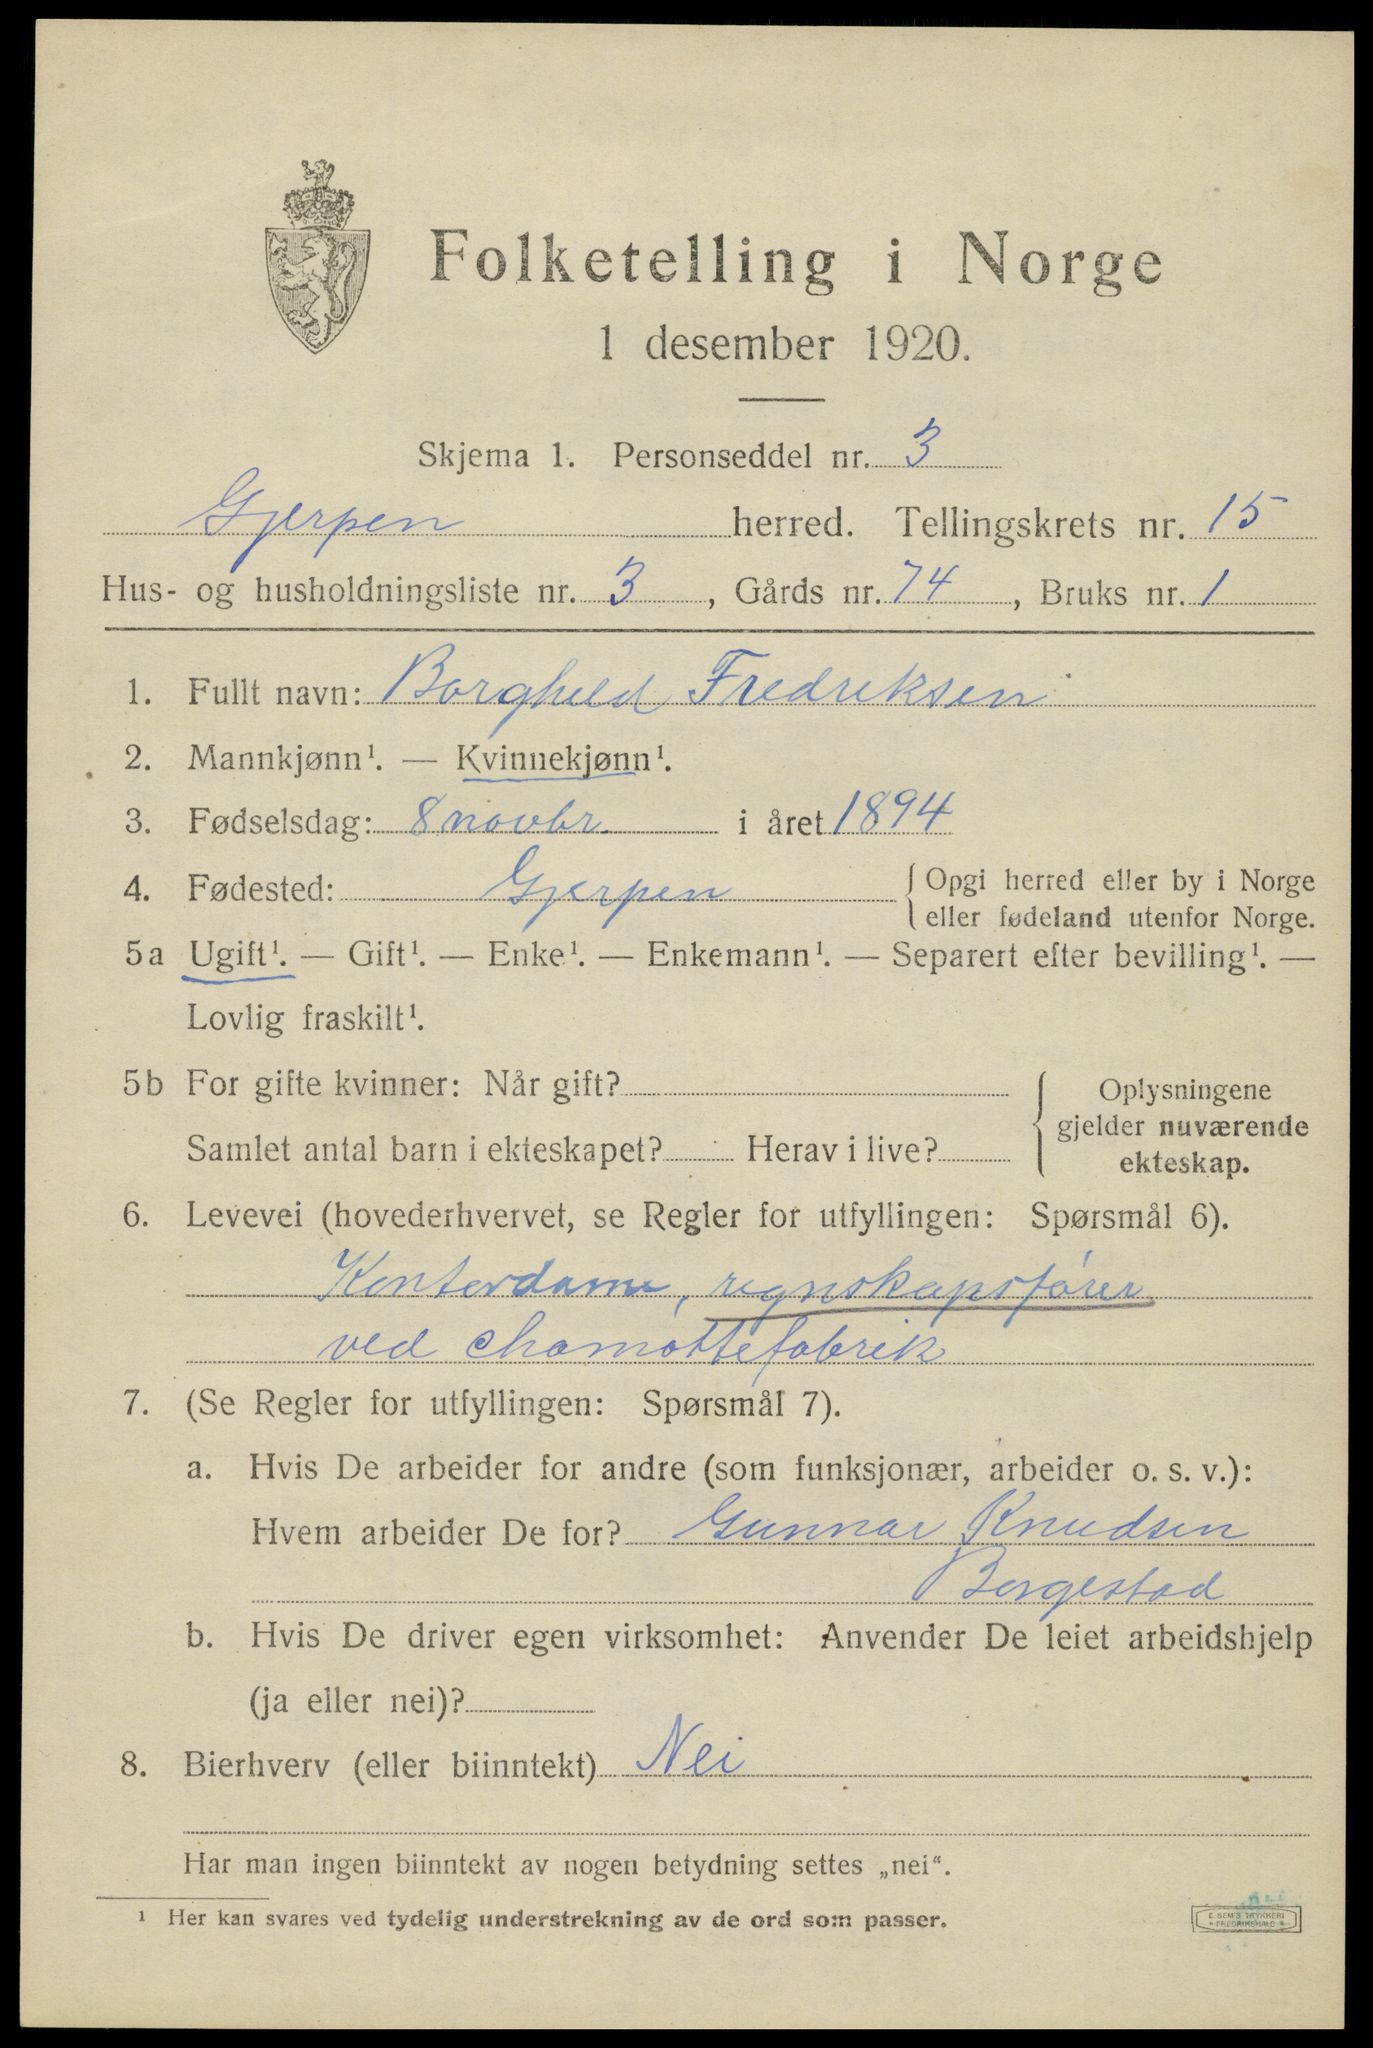 Folketelling i Norge
1 desember 1920.
Skjema 1. Personseddel nr. 3
Gjerpen herred. Tellingskrets nr. 15
Hus- og husholdningsliste nr. 3, Gårds nr. 74, Bruks nr. 1
1. Fullt navn: Borghild Fredriksen
2. Mannkjønn¹. — Kvinnekjønn¹.
3. Fødselsdag: 8 novbr. i året 1894
4. Fødested: Gjerpen { Opgi herred eller by i Norge
eller fødeland utenfor Norge.
5a Ugift¹. — Gift¹. — Enke¹. — Enkemann¹. — Separert efter bevilling¹. —
Lovlig fraskilt¹.
5b For gifte kvinner: Når gift?
Samlet antal barn i ekteskapet? Herav i live?
{ Oplysningene
gjelder nuværende
ekteskap.
6. Levevei (hovederhvervet, se Regler for utfyllingen: Spørsmål 6).
Kontordame, regnskapsfører
ved chamottefabrik
7. (Se Regler for utfyllingen: Spørsmål 7).
a. Hvis De arbeider for andre (som funksjonær, arbeider o. s. v.):
Hvem arbeider De for? Gunnar Knudsen
Borgestad
b. Hvis De driver egen virksomhet: Anvender De leiet arbeidshjelp
(ja eller nei)?
8. Bierhverv (eller biinntekt) Nei
Har man ingen biinntekt av nogen betydning settes „nei“.
¹ Her kan svares ved tydelig understrekning av de ord som passer.
E. SEM'S TRYKKERI
FREDRIKSHALD